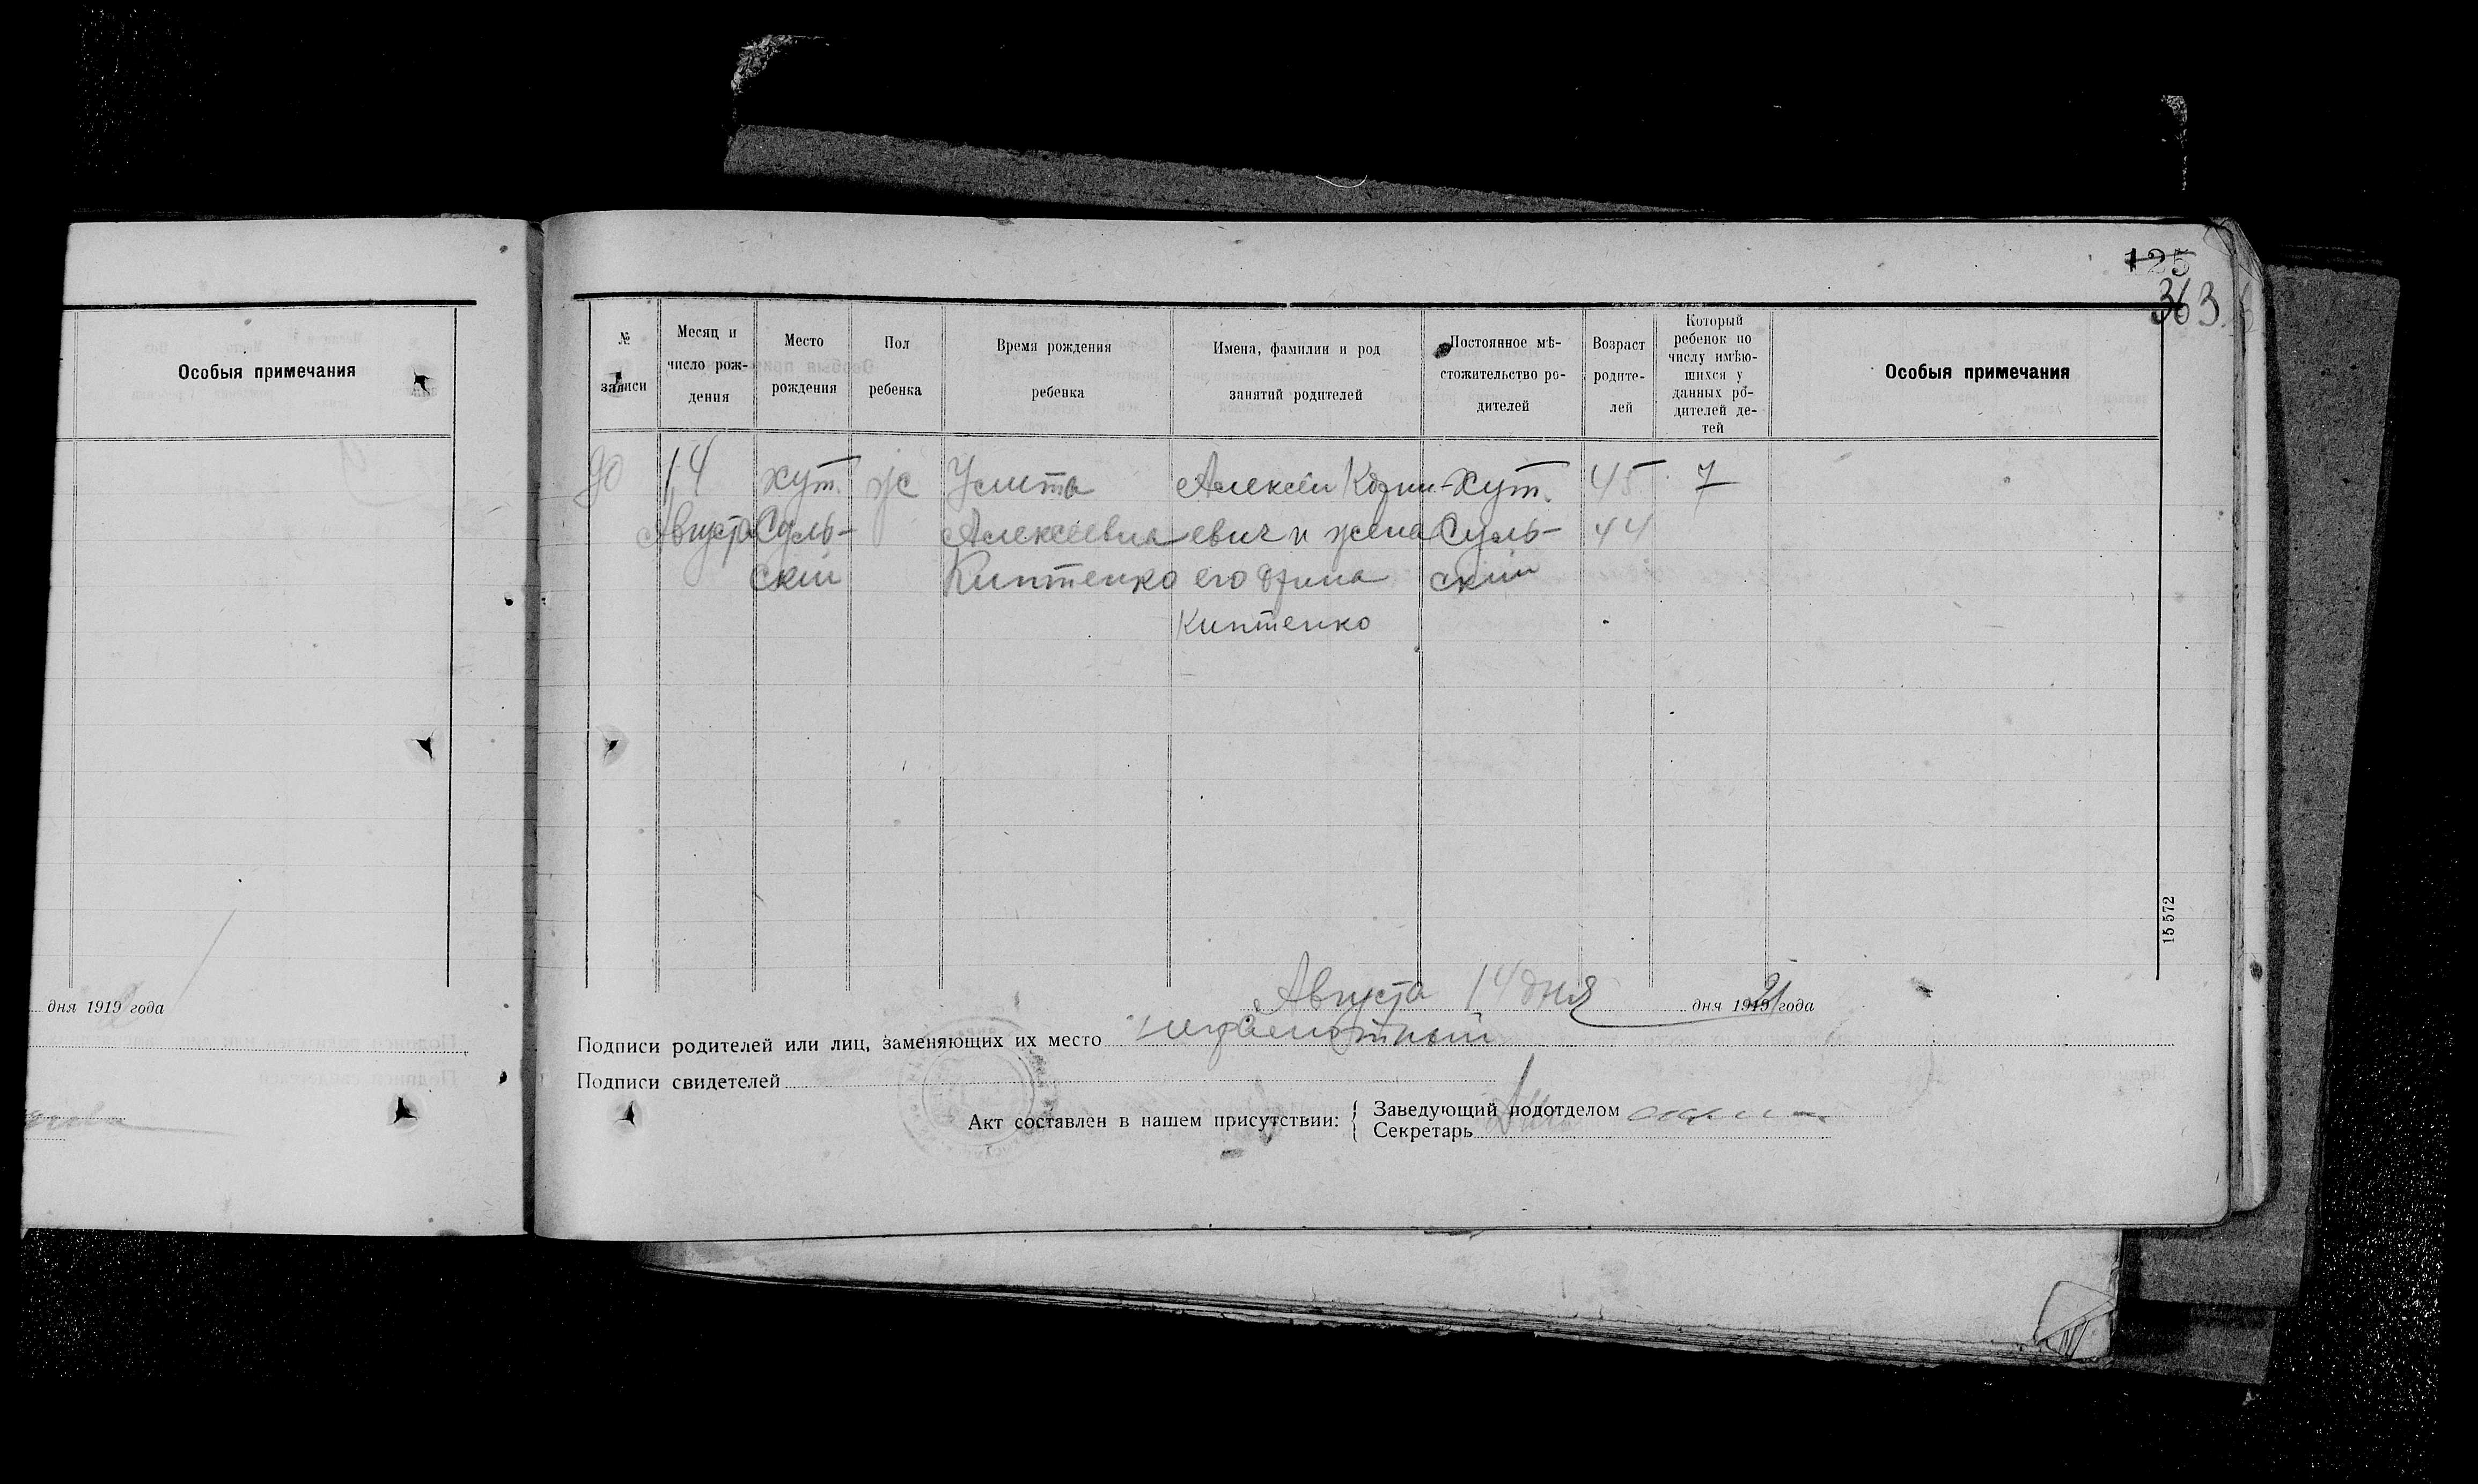 125
363
Особыя примечания
дня 1919 года
№ записи
Месяц и число рож-дения
Место рождения
Пол ребенка
Время рождения ребенка
Имена, фамилии и род занятий родителей
Постоянное мѣ-стожительство ро-дителей
Возраст родите-лей
Который ребенок по числу имѣю-шихся у данных ро-дителей де-тей
Особыя примечания
90 14 хут. ж Улита Алексей хут. 45 7
Августа Суль- Алексеевна евич и жена Суль- 44
ский Киптенко его ский
Киптенко
15 572
Августа 14 дня дня 1921 года
Подписи родителей или лиц, заменяющих их место неграмотный
Подписи свидетелей
Акт составлен в нашем присутствии: { Заведующий подотделом
Секретарь